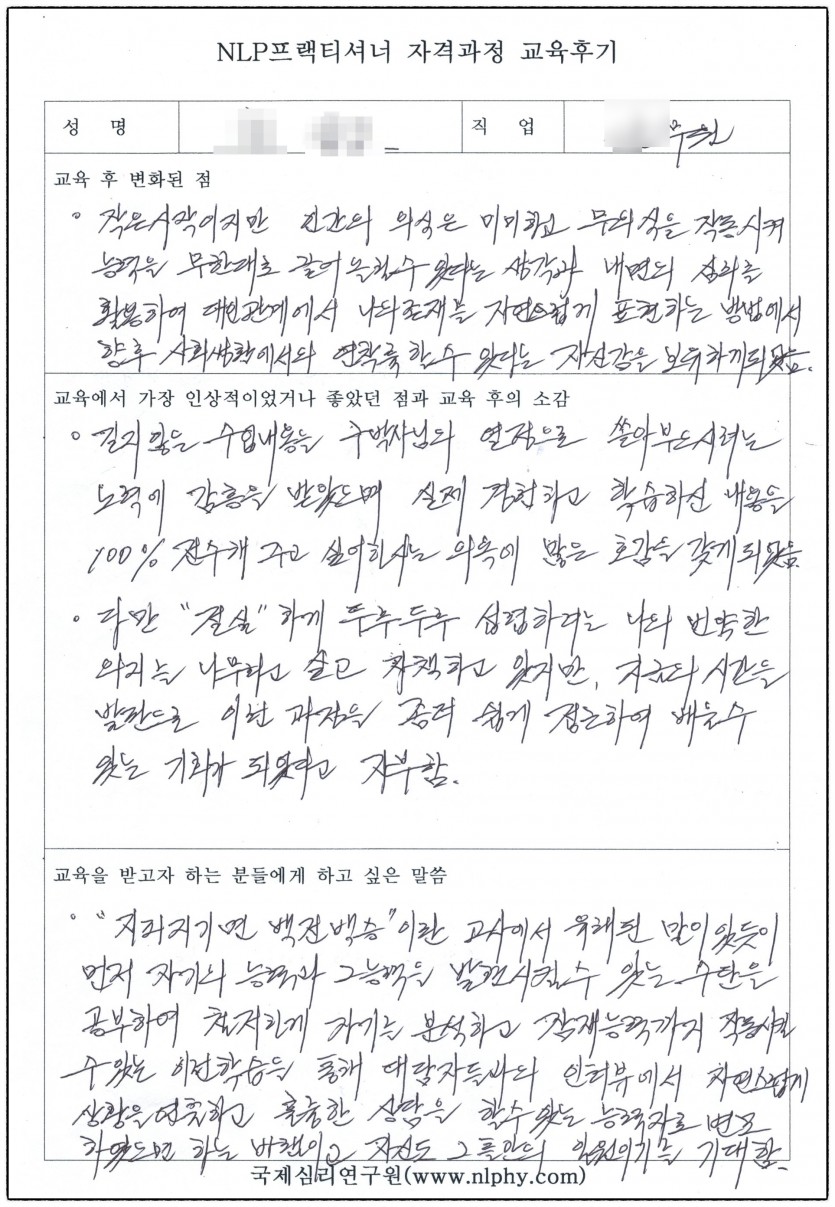 NLP프랙티셔너 자격과정 교육후기
성 명
직 업 무원
교육 후 변화된 점
◦ 작은시작이지만 인간의 의식은 미미하고 무의식을 작동시켜
능력을 무한대로 끌어올릴수 있다는 생각과 내면의 심리를
활용하여 대인관계에서 나의존재를 자연스럽게 표현하는 방법에서
향후 사회생활에서의 연착륙 할수 있다는 자신감을 보유하게되었음.
교육에서 가장 인상적이었거나 좋았던 점과 교육 후의 소감
◦ 길지않은 수업내용을 구박사님의 열정으로 쏟아부으시려는
노력에 감흥을 받았으며 실제 경험하고 학습하신 내용을
100% 전수해 주고 싶어하시는 의욕에 많은 호감을 갖게되었음.
◦ 다만 "절실"하게 두루두루 섭렵하려는 나의 빈약한
의지를 나무라고 싶고 자책하고 있지만, 지금의 시간을
발판으로 이런 과정을 좀더 쉽게 접근하여 배울수
있는 기회가 되었다고 자부함.
교육을 받고자 하는 분들에게 하고 싶은 말씀
◦ "지피지기면 백전백승"이란 고사에서 유래된 말이 있듯이
먼저 자기의 능력과 그능력을 발전시킬수 있는 수단을
공부하여 철저하게 자기를 분석하고 잠재능력까지 작동시킬
수있는 이런학습을 통해 대담자들과의 인터뷰에서 자연스럽게
상황을연출하고 훌륭한 상담을 할수있는 능력자로 변모
하였으면 하는 바램이고 자신도 그 일원이기를 기대함.
국제심리연구원(www.nlphy.com)